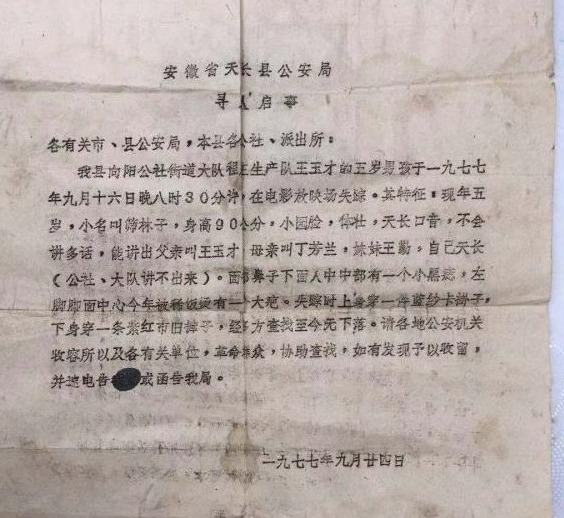 安徽省天长县公安局
寻人启事
各有关市、县公安局，本县各公社、派出所：
我县向阳公社街道大队程庄生产队王玉才的五岁男孩于一九七七
年九月十六日晚八时30分许，在电影放映场失踪。其特征：现年五
岁，小名叫筛林子，身高90公分，小园脸，体壮，天长口音，不会
讲多话，能讲出父亲叫王玉才，母亲叫丁芳兰，妹妹王勤。自己天长
（公社、大队讲不出来）。面部鼻子下面人中中部有一个小黑痣，左
脚脚面中心今年被稀饭烫有一个大疤。失踪时上身穿一件蓝纱卡褂子，
下身穿一条紫红市旧裤子，经多方查找至今无下落。请各地公安机关
收容所以及各有关单位，革命群众，协助查找，如有发现予以收留，
并速电告 或函告我局。
一九七七年九月廿四日